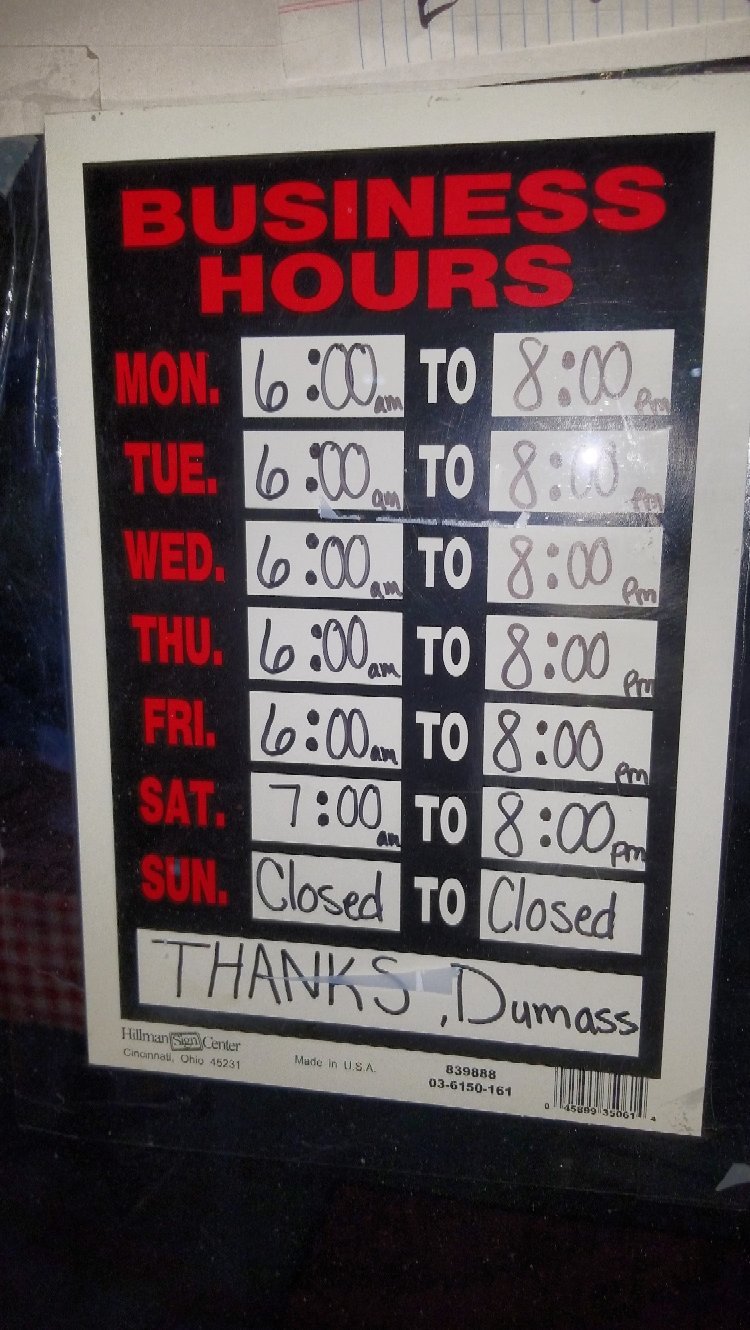 BUSINESS
HOURS
MON. 6:00 am TO 8:00 pm
TUE. 6:00 am TO 8:00 pm
WED. 6:00 am TO 8:00 pm
THU. 6:00 am TO 8:00 pm
FRI. 6:00 am TO 8:00 pm
SAT. 7:00 am TO 8:00 pm
SUN. Closed TO Closed
THANKS, Dumass
Hillman Sign Center
Cincinnati, Ohio 45231
Made in U.S.A.
839888
03-6150-161
0 45899 35061 4